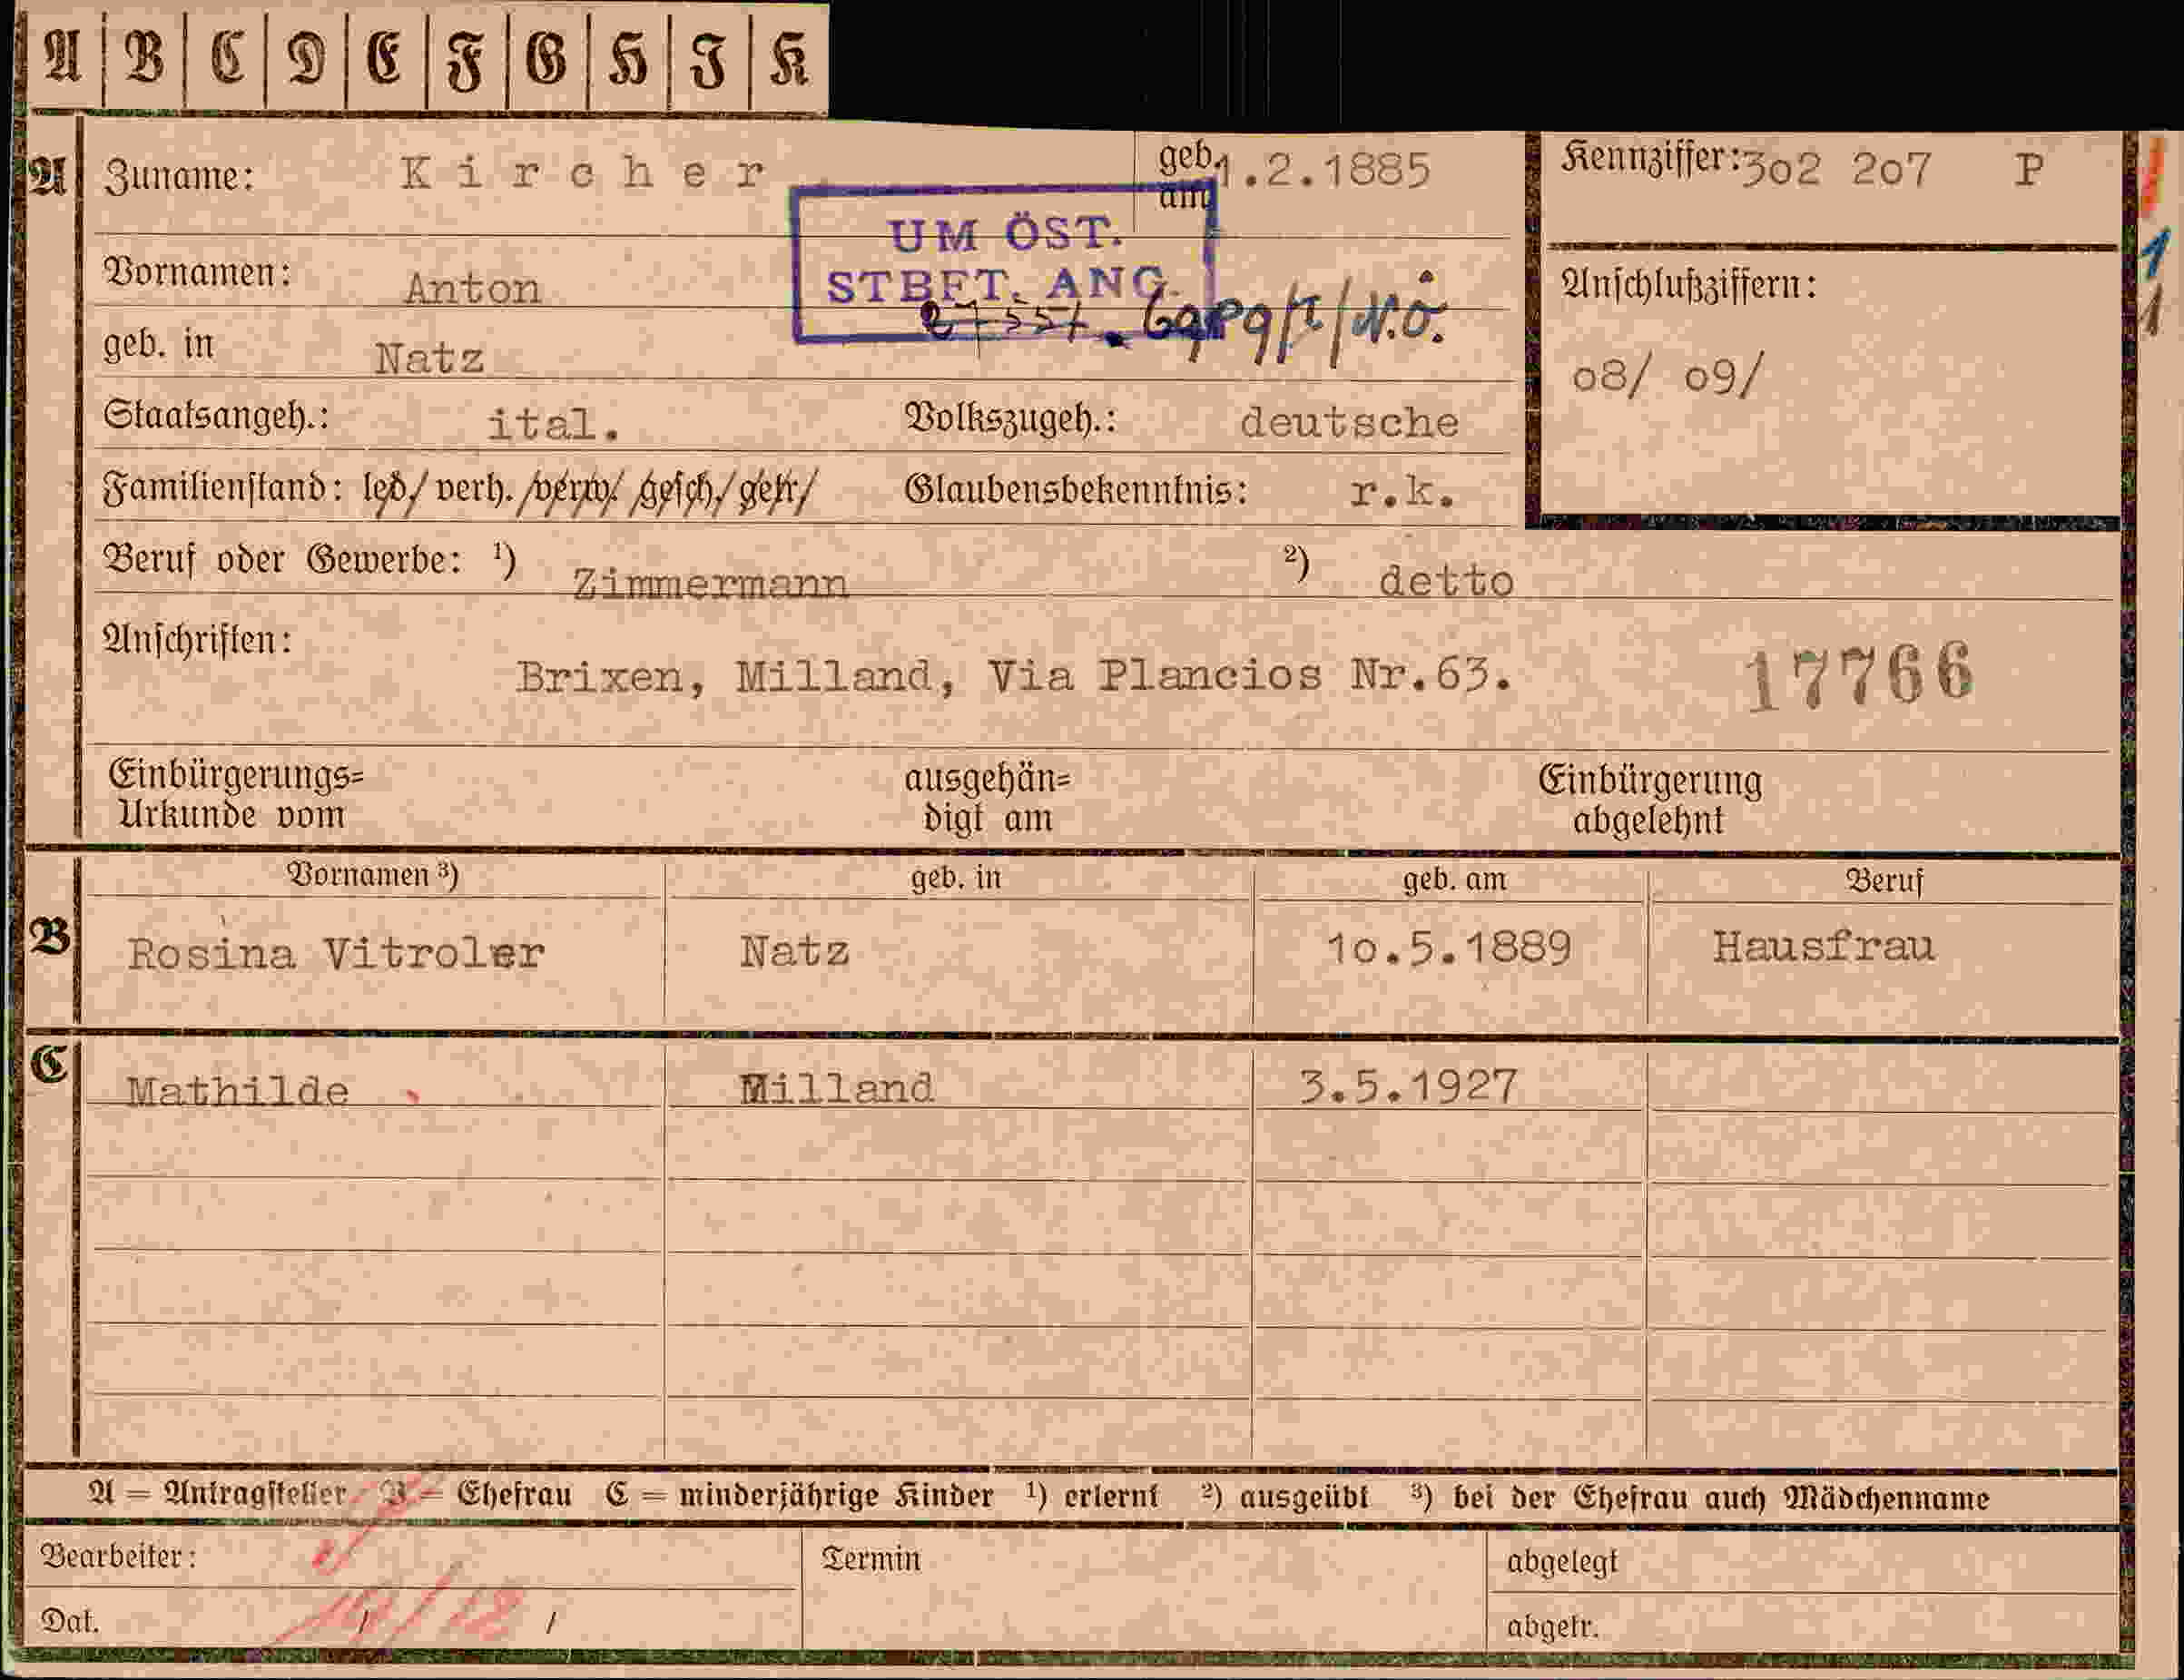 A B C D E F G H J K
A Zuname: Kircher geb. am 1.2.1885 Kennziffer: 302 207 P
UM ÖST.
STBFT. ANG.
Vornamen: Anton Anschlußziffern:
geb. in Natz 08/ 09/
Staatsangeh.: ital. Volkszugeh.: deutsche
Familienstand: led/ verh. /verw/ /gesch/ getr/ Glaubensbekenntnis: r.k.
Beruf oder Gewerbe: ¹) Zimmermann ²) detto
Anschriften:
Brixen, Milland, Via Plancios Nr.63. 17766
Einbürgerungs=
Urkunde vom
ausgehän=
digt am
Einbürgerung
abgelehnt
Vornamen ³) geb. in geb. am Beruf
B Rosina Vitroler Natz 10.5.1889 Hausfrau
C Mathilde Milland 3.5.1927
A = Antragsteller B = Ehefrau C = minderjährige Kinder ¹) erlernt ²) ausgeübt ³) bei der Ehefrau auch Mädchenname
Bearbeiter: Termin abgelegt
Dat. 19/12 / abgetr.